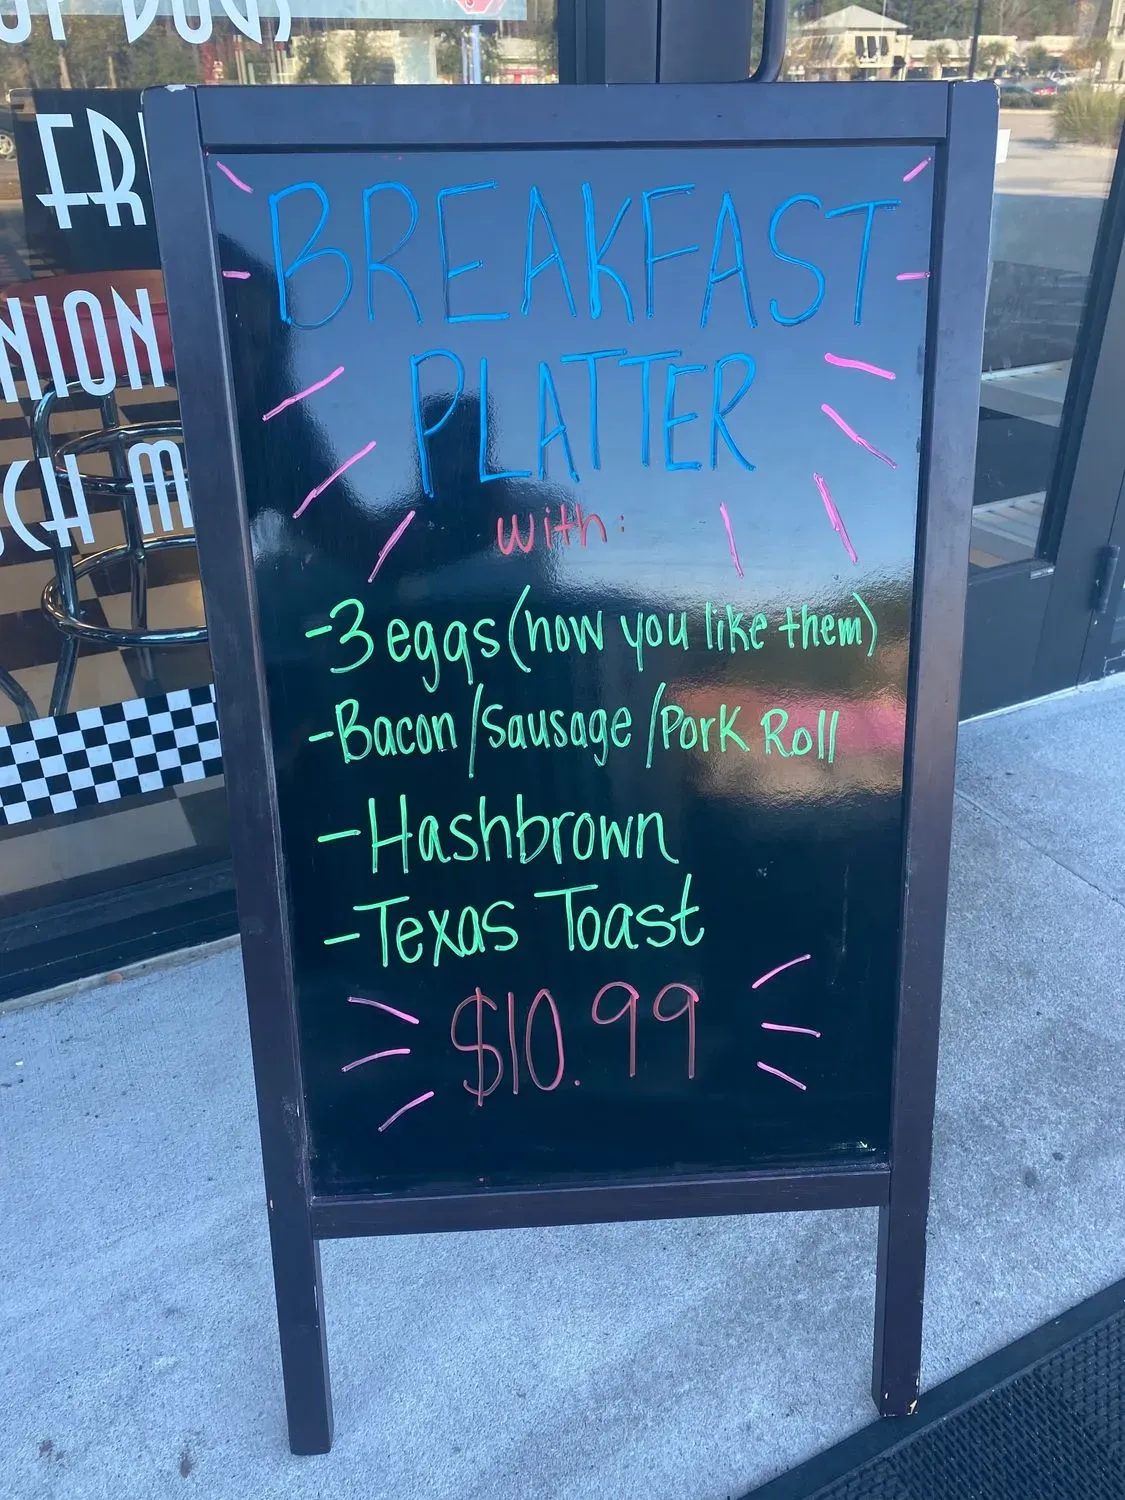 BREAKFAST
PLATTER
with:
-3 eggs (how you like them)
-Bacon/Sausage/Pork Roll
-Hashbrown
-Texas Toast
$10.99
DOGS
FR
NION
CH M